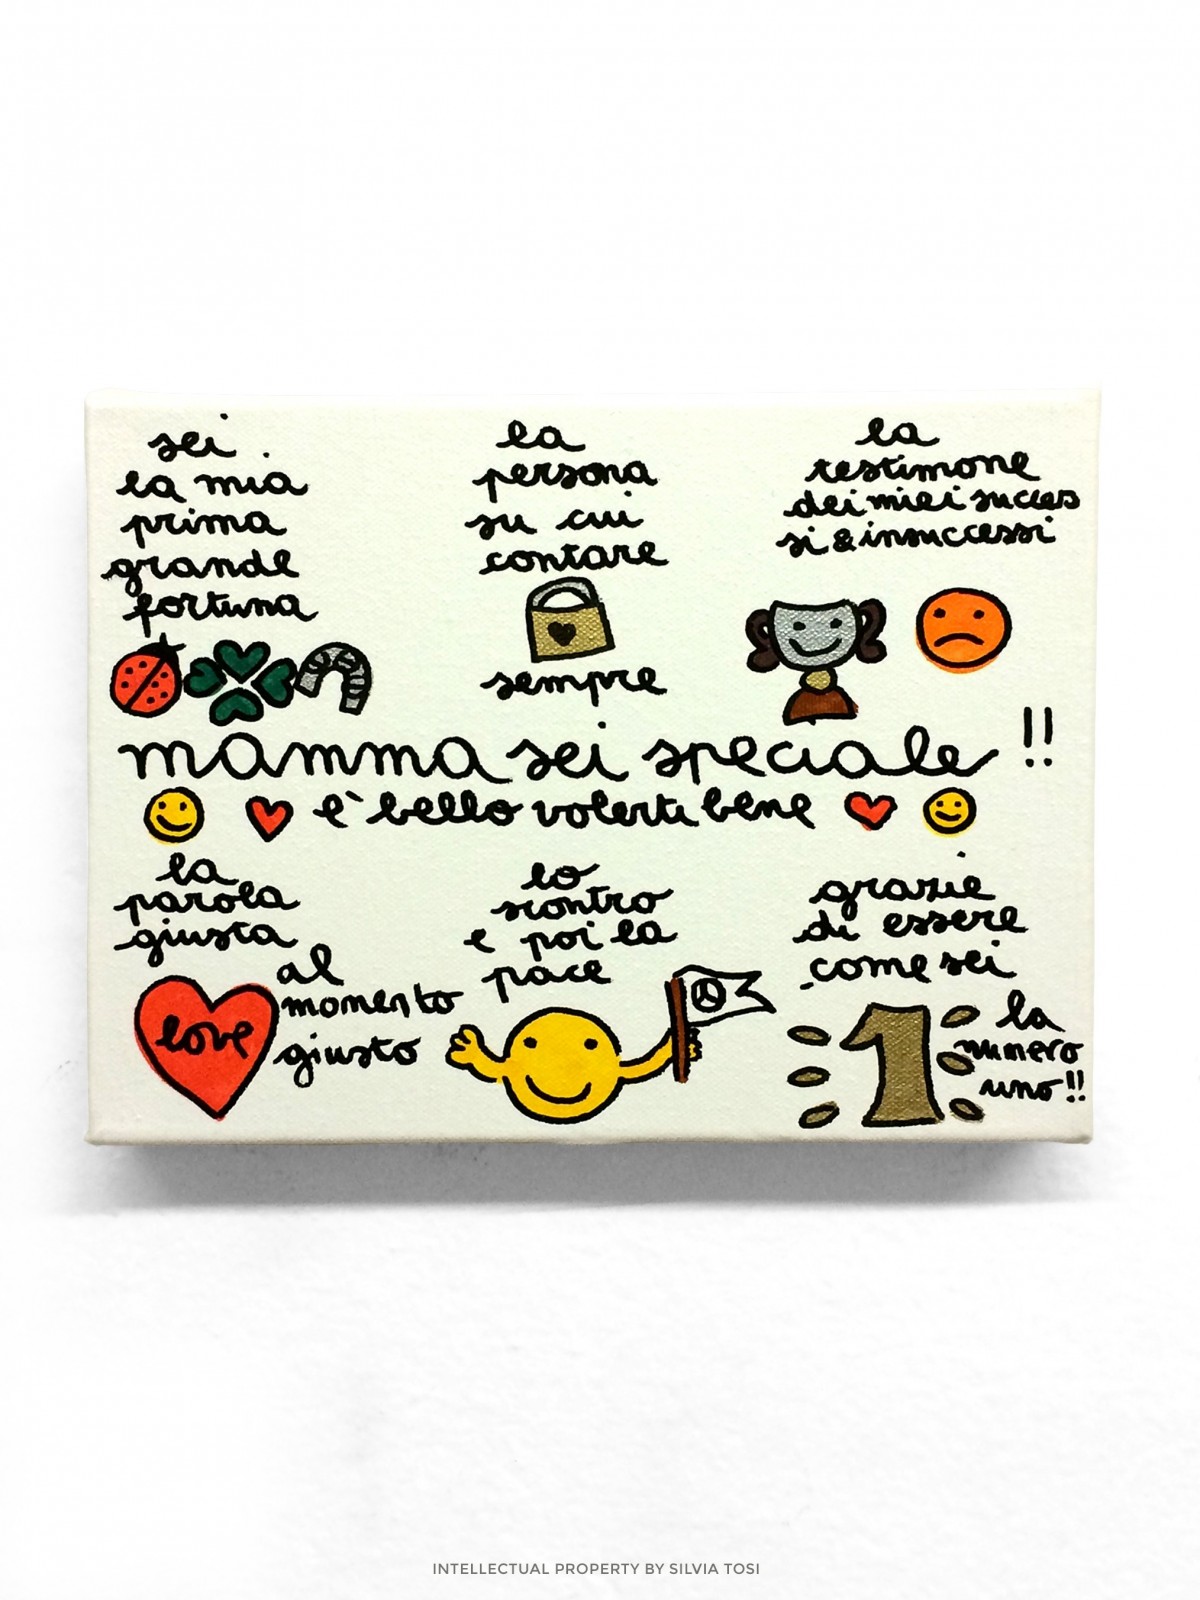 sei
la mia
prima
grande
fortuna
la
persona
su cui
contare
sempre
la
testimone
dei miei succes
si & insuccessi
mamma sei speciale !!
e` bello volerti bene
la
parola
giusta
al
momento
giusto
love
lo
scontro
e poi la
pace
grazie
di essere
come sei
1
la
numero
uno!!
INTELLECTUAL PROPERTY BY SILVIA TOSI